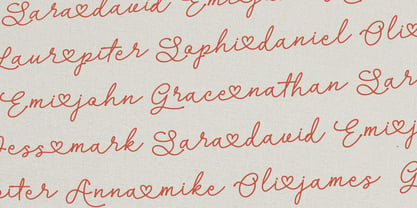 Sara♡david Emi♡ja
Laur♡piter Sophi♡daniel Oli♡
Emi♡john Grace♡nathan Sar
Jess♡mark Sara♡david Emi♡j
piter Anna♡mike Oli♡james G